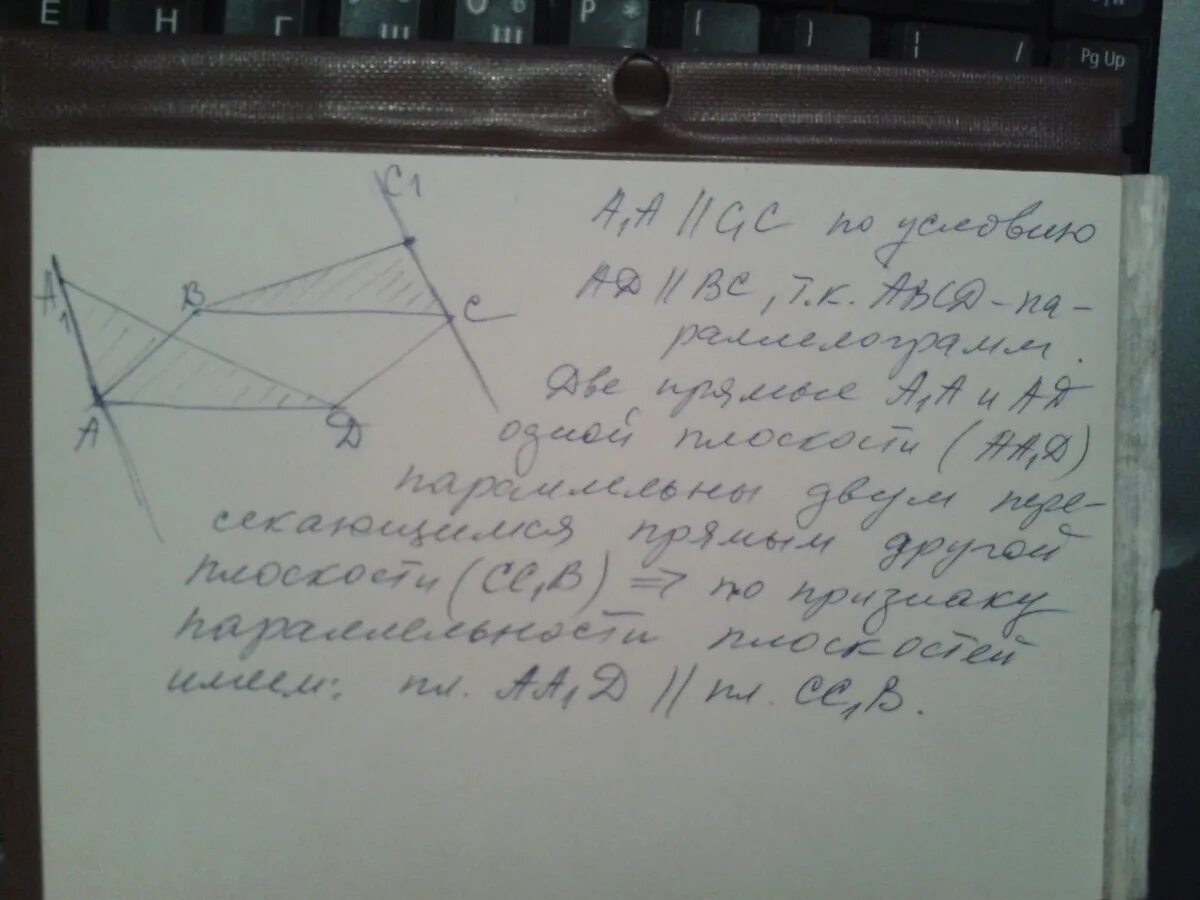 Е Н Г Ш О Щ Р { } | / Pg Up
C1
A1
B
C
A
D
A₁A || C₁C по условию
AD || BC, т.к. ABCD - па-
раллелограмм.
Две прямые A₁A и AD
одной плоскости (AA₁D)
параллельны двум пере-
секающимся прямым другой
плоскости (CC₁B) => по признаку
параллельности плоскостей
имеем: пл. AA₁D || пл. CC₁B.